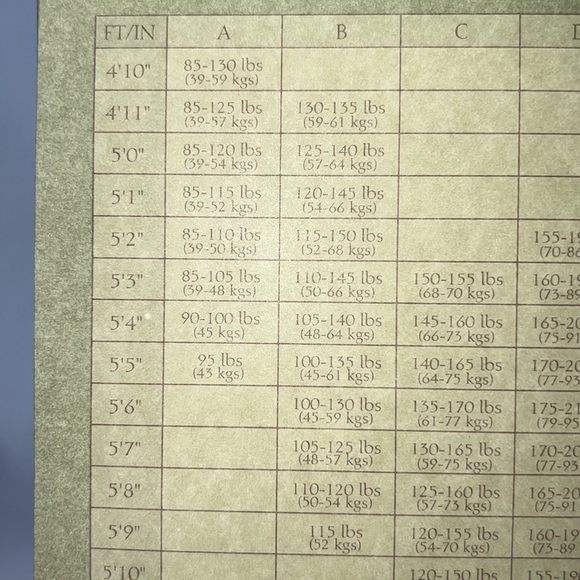 FT/IN A B C
4'10" 85-130 lbs
(39-59 kgs)
4'11" 85-125 lbs 130-135 lbs
(39-57 kgs) (59-61 kgs)
5'0" 85-120 lbs 125-140 lbs
(39-54 kgs) (57-64 kgs)
5'1" 85-115 lbs 120-145 lbs
(39-52 kgs) (54-66 kgs)
5'2" 85-110 lbs 115-150 lbs 155-19
(39-50 kgs) (52-68 kgs) (70-86
5'3" 85-105 lbs 110-145 lbs 150-155 lbs 160-19
(39-48 kgs) (50-66 kgs) (68-70 kgs) (73-89
5'4" 90-100 lbs 105-140 lbs 145-160 lbs 165-20
(45 kgs) (48-64 kgs) (66-73 kgs) (75-91
5'5" 95 lbs 100-135 lbs 140-165 lbs 170-20
(43 kgs) (45-61 kgs) (64-75 kgs) (77-93
5'6" 100-130 lbs 135-170 lbs 175-21
(45-59 kgs) (61-77 kgs) (79-95
5'7" 105-125 lbs 130-165 lbs 170-20
(48-57 kgs) (59-75 kgs) (77-93
5'8" 110-120 lbs 125-160 lbs 165-20
(50-54 kgs) (57-73 kgs) (75-91
5'9" 115 lbs 120-155 lbs 160-19
(52 kgs) (54-70 kgs) (73-89
5'10" 120-150 lbs 155-19